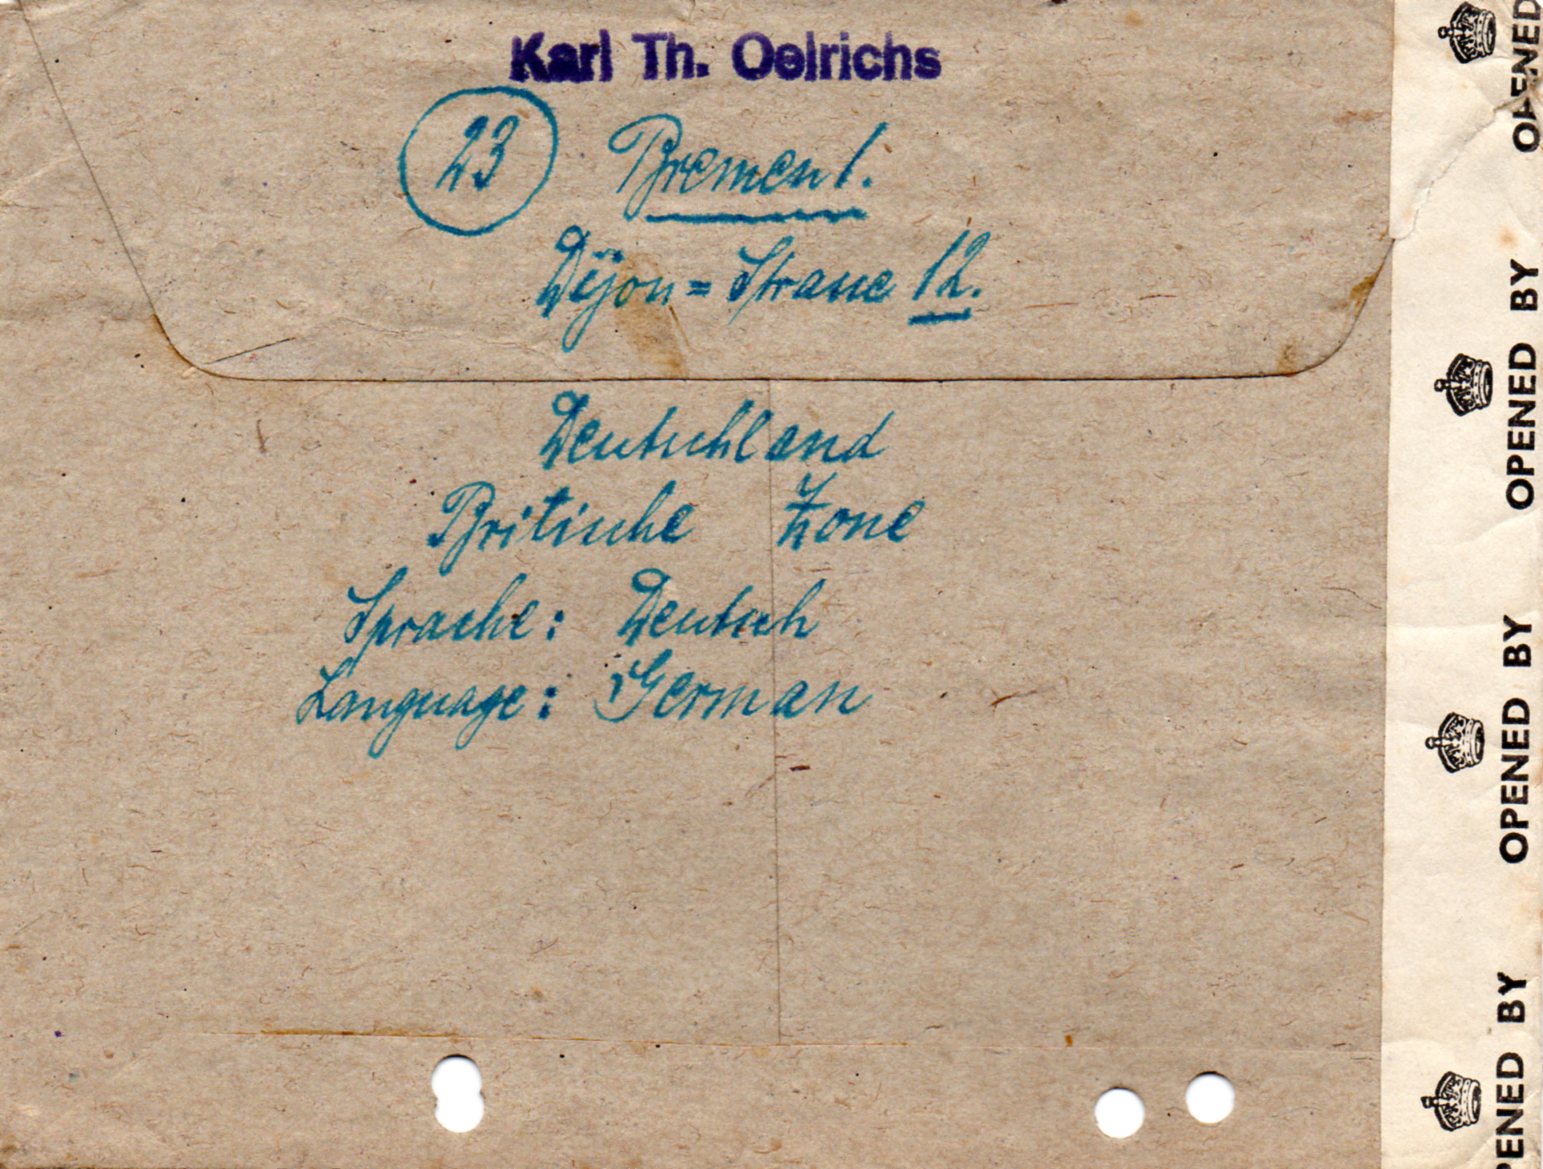 Karl Th. Oelrichs
23 Bremen 1.
Dijon=Strasse 12.
Deutschland
Britische Zone
Sprache: Deutsch
Language: German
OPENED
OPENED BY
OPENED BY
PENED BY